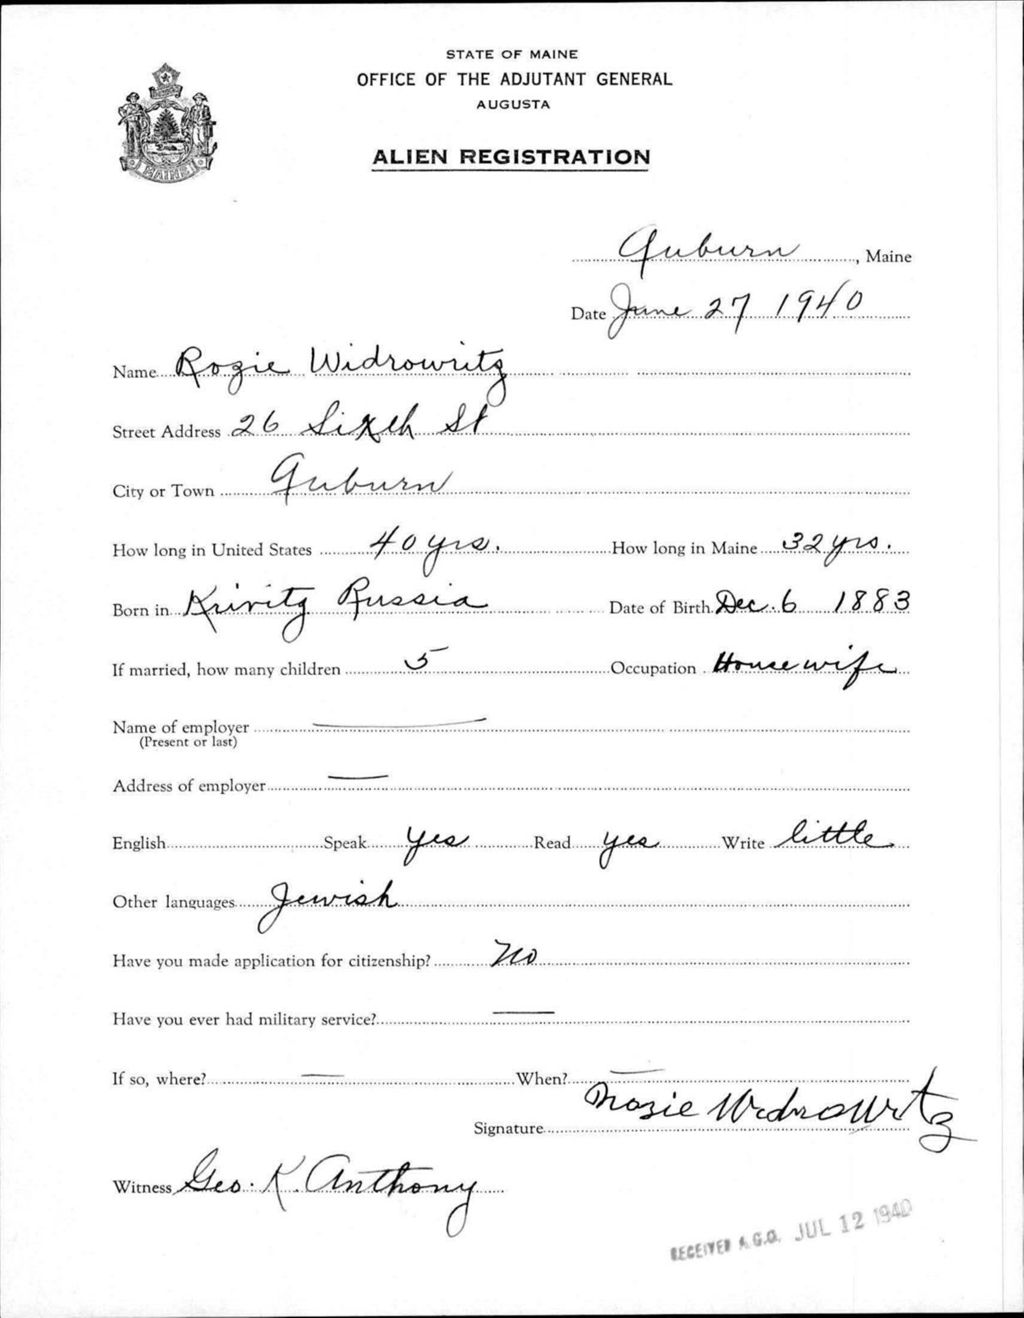 STATE OF MAINE
OFFICE OF THE ADJUTANT GENERAL
AUGUSTA
ALIEN REGISTRATION
MAINE
Auburn, Maine
Date June 27 1940
Name Rozie Widrowritz
Street Address 26 Sixth St
City or Town Auburn
How long in United States 40 yrs. How long in Maine 32 yrs.
Born in Krivitz Russia Date of Birth Dec. 6 1883
If married, how many children 5 Occupation Housewife
Name of employer
(Present or last)
Address of employer
English Speak yes Read yes Write little
Other languages Jewish
Have you made application for citizenship? No
Have you ever had military service?
If so, where? When?
Signature Widrowitz
Witness Geo. K. Anthony
RECEIVED A.G.O. JUL 12 1940